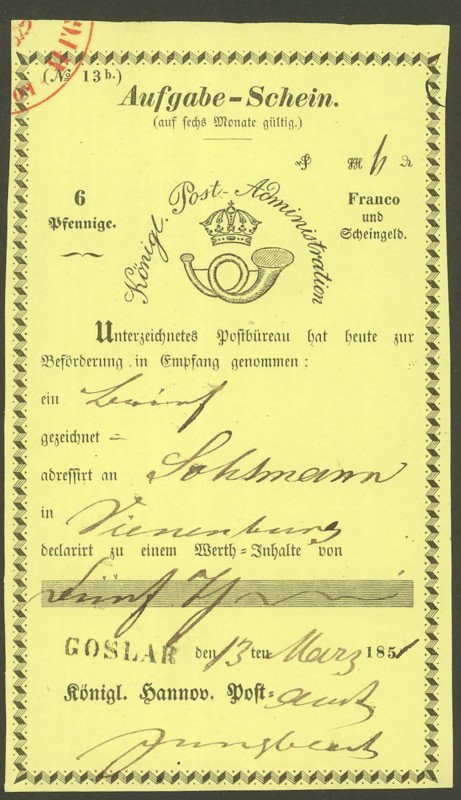 (№ 13b.)
Aufgabe-Schein.
(auf sechs Monate gültig.)
6
Pfennige.
Königl. Post-Administration
Franco
und
Scheingeld.
Unterzeichnetes Postbüreau hat heute zur
Beförderung in Empfang genommen:
ein Brief
gezeichnet -
adressirt an Sohlmann
in Vienenburg
declarirt zu einem Werth-Inhalte von
Fünf
GOSLAR den 13 ten März 1851
Königl. Hannov. Post-amt